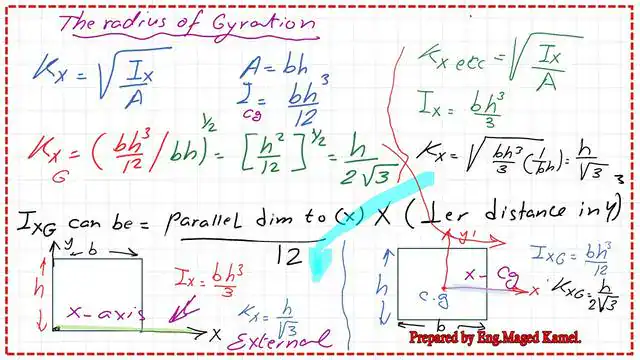 The radius of Gyration
Kx = √(Ix/A)
A = bh
I cg = bh³/12
Kx G = (bh³/12 / bh)^1/2 = [h²/12]^1/2 = h/2√3
Kx etc = √(Ix/A)
Ix = bh³/3
Kx = √(bh³/3 (1/bh)) = h/√3
3
IXG can be = parallel dim to (x) X (⊥er distance in y)
12
y
b
h
x-axis
X
Ix = bh³/3
Kx = h/√3
External
y'
h
x - Cg
c.g
x'
b
IXG = bh³/12
KXG = h/2√3
Prepared by Eng.Maged Kamel.